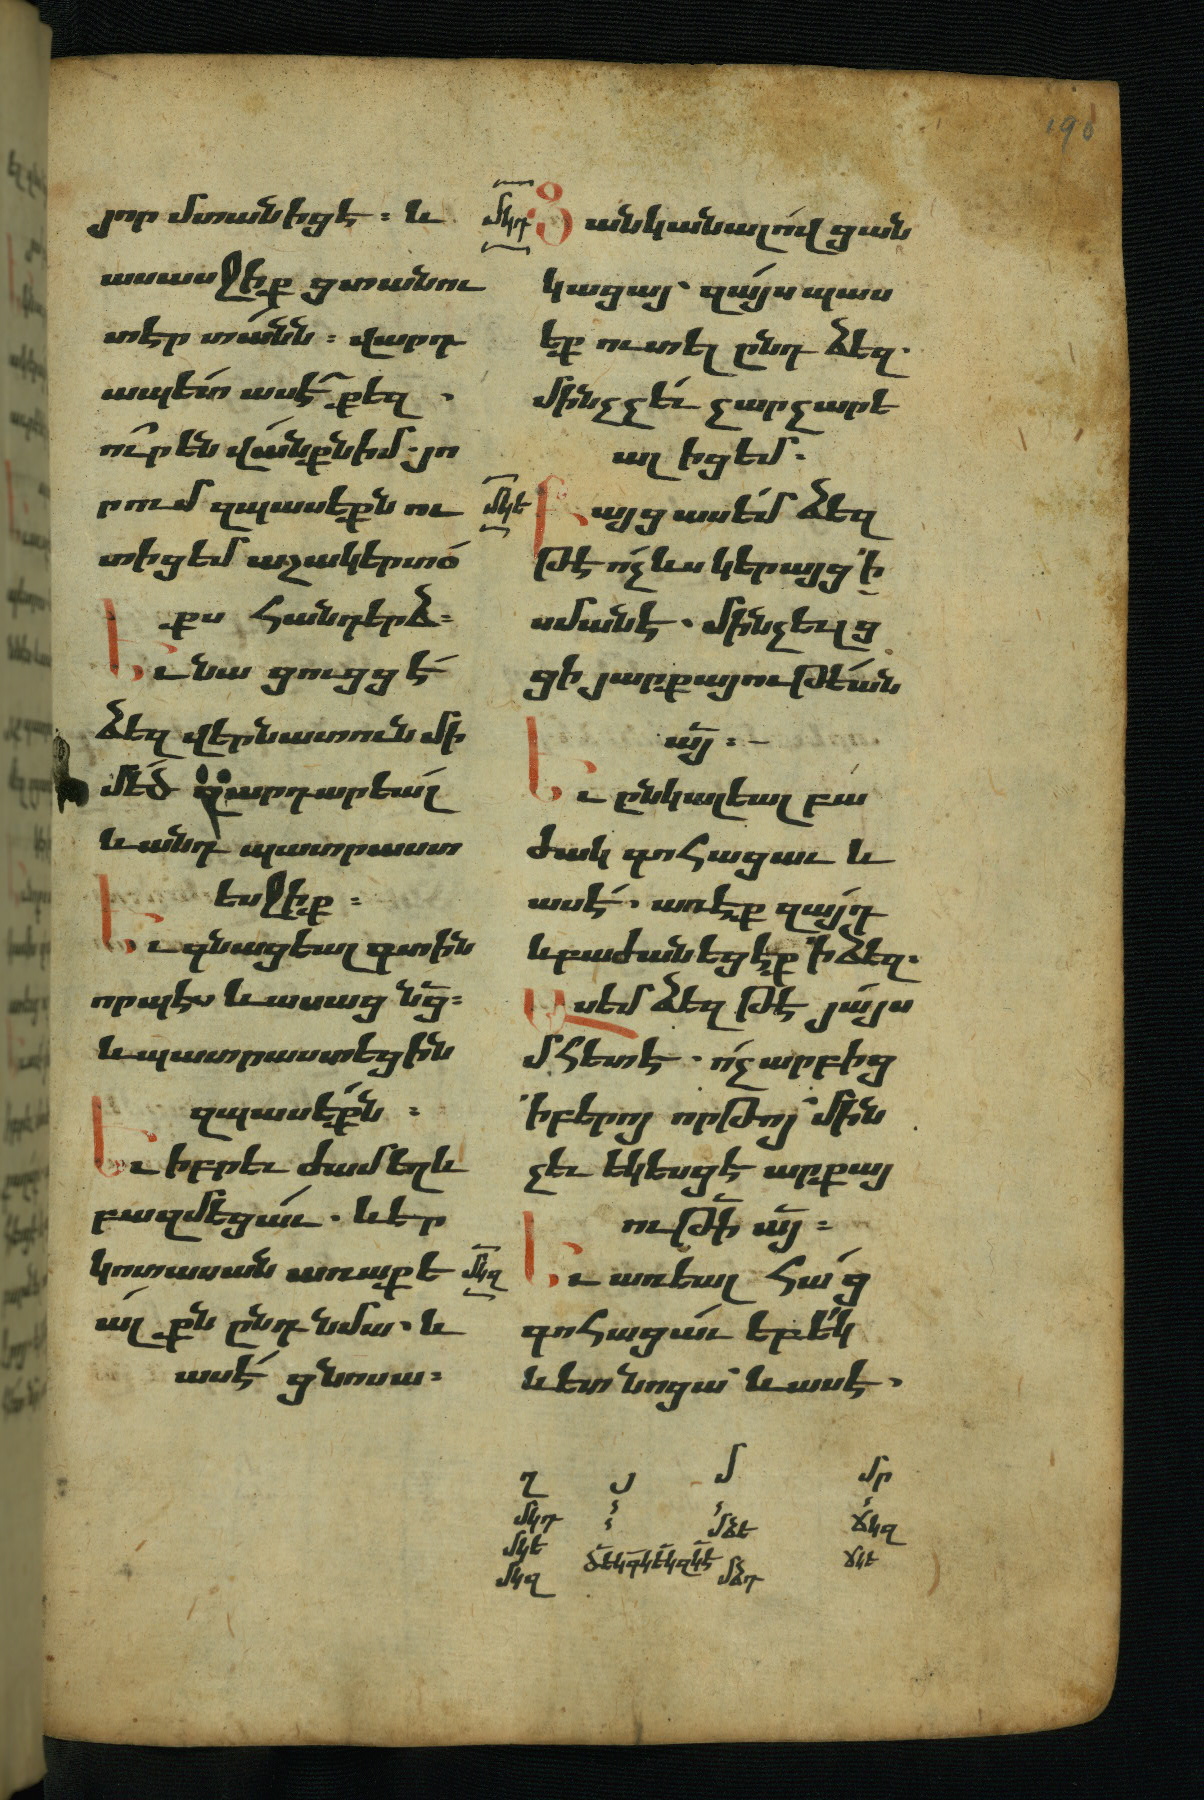 յոր մտանիցէ։ և
ասասջիք ցտանու
տէր տանն։ վարդ
ապետ ասէ քեզ.
ո՞ւր են վանքն իմ. յո
րում զպասեքն ու
տիցեմ աշակերտօ
քս հանդերձ։
Եւ նա ցուցցէ
ձեզ վերնատուն մի
մեծ զարդարեալ
և անդ պատրաստ
եսջիք։
Եւ գնացեալ գտին
որպէս և ասաց նց։
և պատրաստեցին
զպասեքն։
Եւ իբրեւ ժամ եղև
բազմեցաւ. և եր
կոտասան առաքե
ալ քն ընդ նմա. և
ասէ ցնոսա։
մկդ Ցանկանալով ցան
կացայ՝ զայս պաս
եք ուտել ընդ ձեզ.
մինչչեւ չարչարե
ալ իցեմ.
մկե Բայց ասեմ ձեզ
թէ ոչ ևս կերայց ՛ի
սմանէ. մինչեւ լց
ցի յարքայութեան
այ։
Եւ ընկալեալ բա
ժակ գոհացաւ և
ասէ. առէք զայդ
և բաժանեցէք ՛ի ձեզ.
Ասեմ ձեզ թէ յայս
մհետէ. ոչ արբից
՛ի բերոյ որթոյ՝ մին
չեւ եկեսցէ արքայ
ութի այ։
մկզ Եւ առեալ հաց
գոհացաւ եբեկ
և ետ նոցա՝ և ասէ.
ղ յ մ մր
մկդ մձե ճկզ
մկե ծե կգ կե կզ կէ մձդ ճկե
մկզ